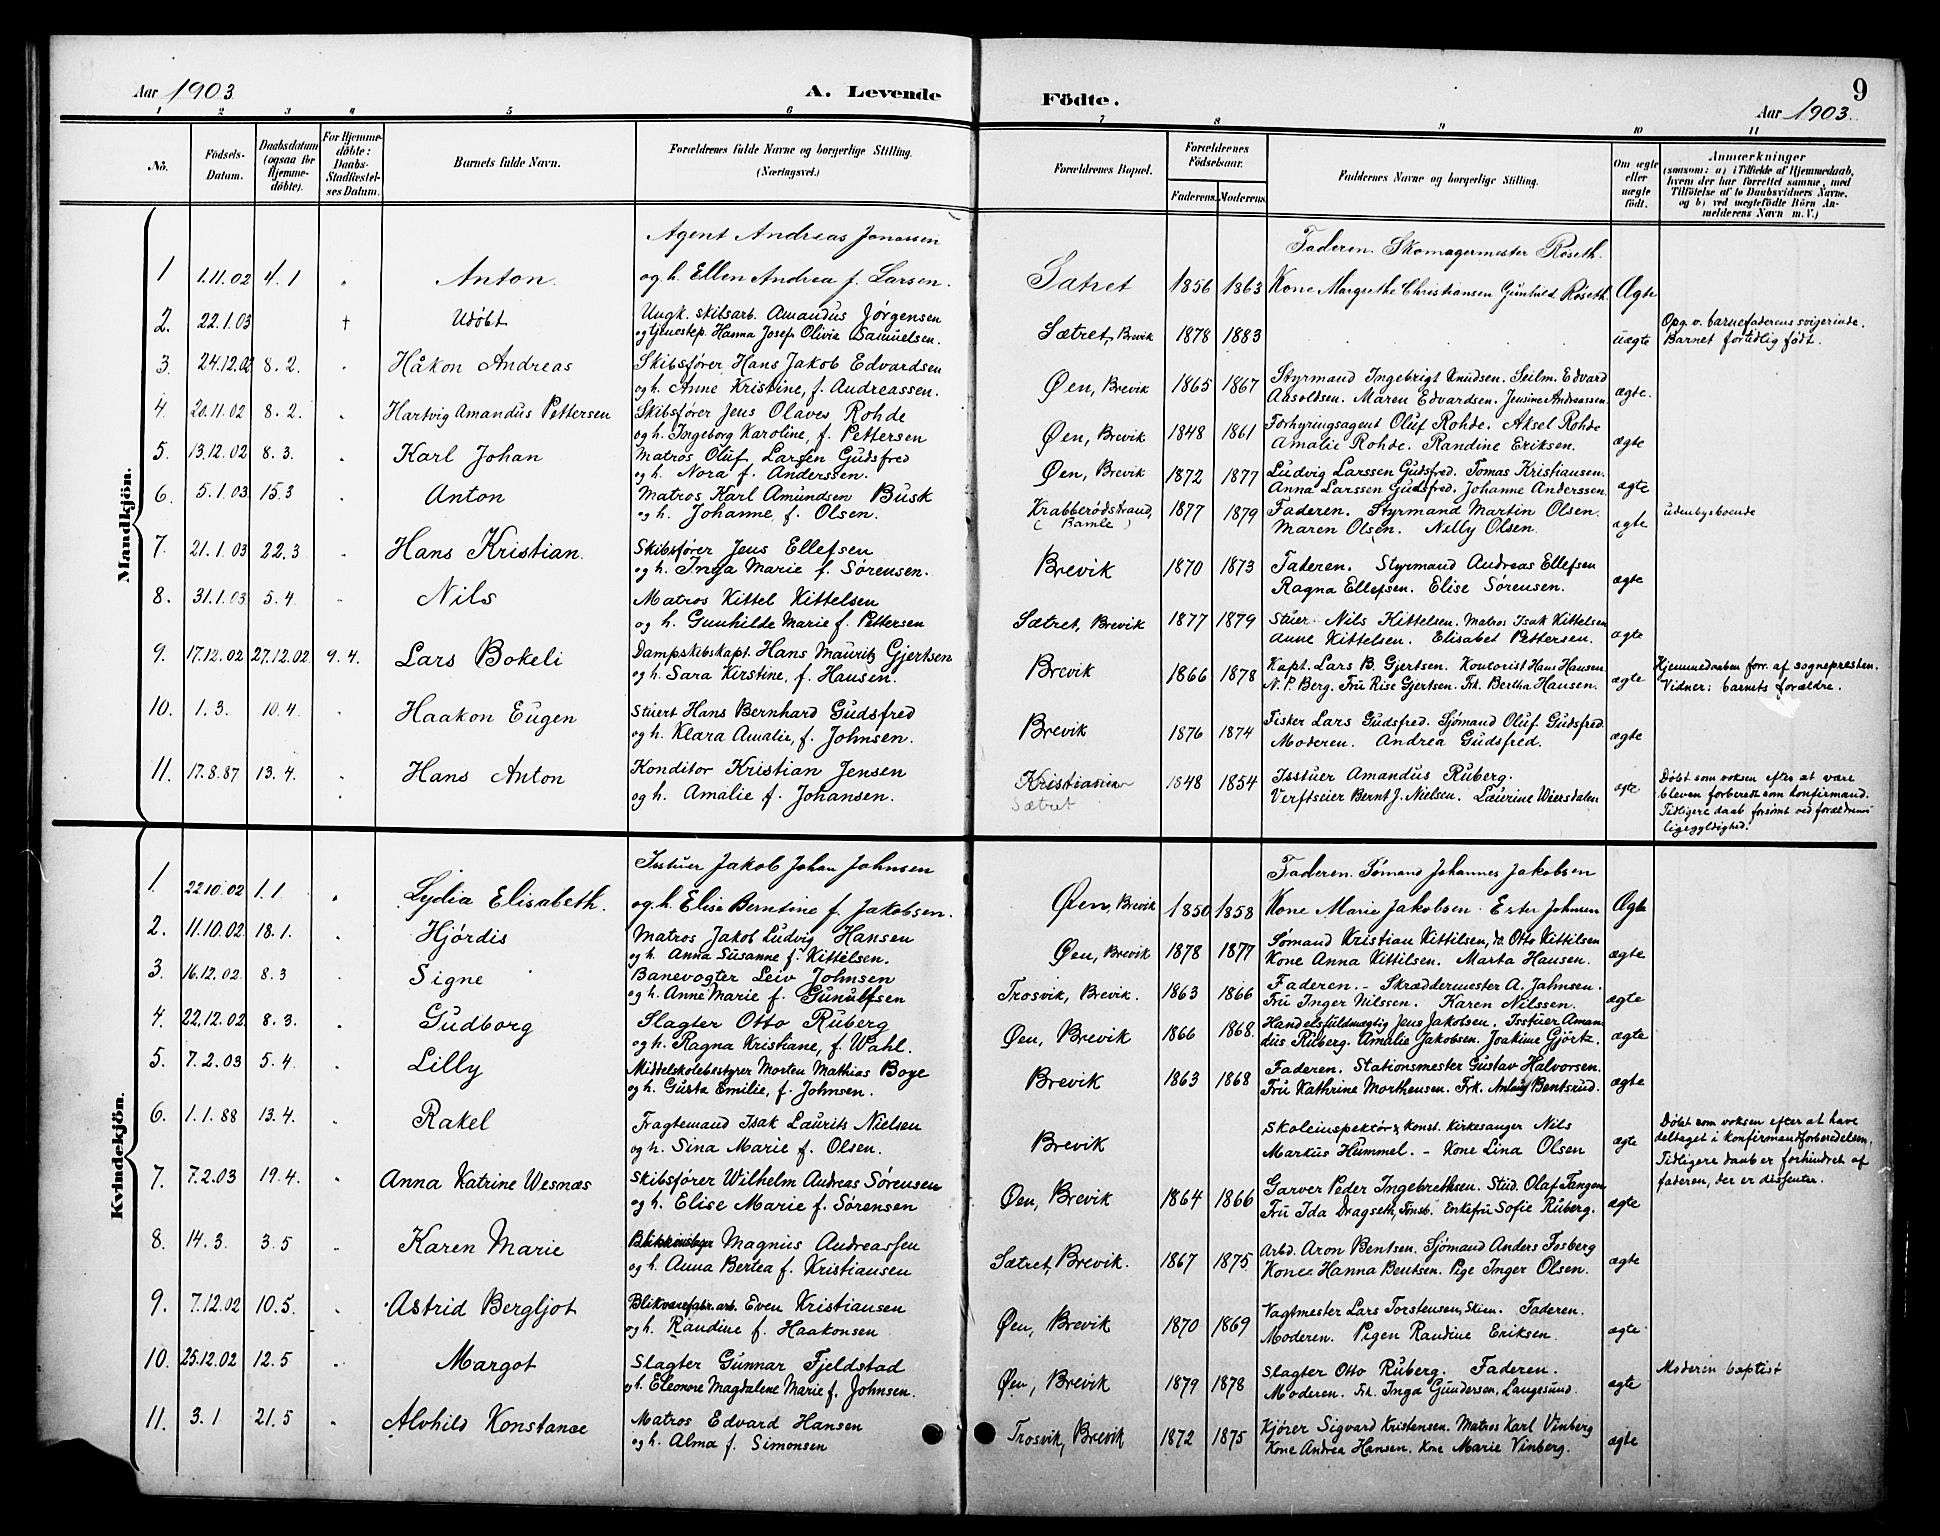 Aar 1903
A. Levende
1 2 3 4 5 6
No.
Födsels-Datum.
Daabsdatum (ogsaa för Hjemme-döbte).
For Hjemme-döbte: Daabs-Stadfæstel-ses Datum.
Barnets fulde Navn.
Forældrenes fulde Navne og borgerlige Stilling. (Næringsvei.)
Mandkjön.
Agent Andreas Jonassen
1 1.11.02 4.1 " Anton. og h. Ellen Andrea f. Larsen.
2. 22.1.03 + Udøbt Ungk. skibsarb. Amandus Jørgensen
og tjenestep. Hanna Josef. Olivia Samuelsen.
3. 24.12.02 8.2. " Håkon Andreas Skibsfører Hans Jakob Edvardsen
og h. Anne Kristine, f. Andreassen.
4. 20.11.02 8.2. " Hartvig Amandus Pettersen Skibsfører Jens Olaves Rohde
og h. Ingeborg Karoline, f. Pettersen
5. 13.12.02 8.3. " Karl Johan Matros Oluf Larsen Gudsfred
og h. Nora f. Anderssen.
6. 5.1.03 15.3 " Anton Matros Karl Amundsen Busk
og h. Johanne, f. Olsen.
7. 21.1.03 22.3 " Hans Kristian. Skibsfører Jens Ellefsen
og h. Inga Marie f. Sørensen.
8. 31.1.03 5.4. " Nils Matros Kittel Kittelsen
og h. Gunhilde Marie f. Pettersen
9. 17.12.02 27.12.02 9.4. Lars Bokeli Dampskibskapt. Hans Mauritz Gjertsen
og h. Sara Kirstine, f. Hansen.
10. 1.3. 10.4. " Haakon Eugen Stuert Hans Bernhard Gudsfred
og h. Klara Amalie, f. Johnsen.
11. 17.8.87 13.4. " Hans Anton Konditor Kristian Jensen
og h. Amalie f. Johansen.
Kvindekjön.
Isstuer Jakob Johan Johnsen
1. 22.10.02 1.1 " Lydia Elisabeth. og h. Elise Berntine f. Jakobsen.
2. 11.10.02 18.1. " Hjørdis Matros Jakob Ludvig Hansen
og h. Anna Susanne f. Kittelsen.
3. 16.12.02 8.3 " Signe Banevogter Leiv Johnsen
og h. Anne Marie f. Gunulfsen
4. 22.12.02 8.3. " Gudborg Slagter Otto Ruberg
og h. Ragna Kristiane, f. Wahl.
5. 7.2.03 5.4. " Lilly Middelskolebestyrer Morten Mathias Boye
og h. Gusta Emilie, f. Johnsen.
6. 1.1.88 13.4. " Rakel Fragtemand Isak Laurits Nielsen
og h. Sina Marie f. Olsen.
7. 7.2.03 19.4. " Anna Katrine Wesnæs Skibsfører Wilhelm Andreas Sørensen
og h. Elise Marie f. Sørensen
8. 14.3. 3.5 " Karen Marie Magnius Andreassen
og h. Anna Bertea f. Kristiansen
9. 7.12.02 10.5. " Astrid Bergljot Blikvarefabr. arb. Even Kristiansen
og h. Randine f. Haakonsen
10. 25.12.02 12.5 " Margot Slagter Gunnar Fjeldstad
og h. Eleonore Magdalene Marie f. Johnsen.
11. 3.1 21.5 " Alvhild Konstanse Matros Edvard Hansen
og h. Alma f. Simonsen
Födte.
9
Aar 1903.
7 8 9 10 11
Forældrenes Bopæl.
Forældrenes Födselsaar.
Faderens. Moderens.
Faddernes Navne og borgerlige Stilling.
Om ægte eller uægte födt.
Anmærkninger
(saasom: a) i Tilfælde af Hjemmedaab,
hvem der har forrettet samme, med
Tilföielse af to Daabsvidners Navne,
og b) ved uægtefödte Börn An-
melderens Navn m. V.)
Faderen. Skomagermester Røseth.
Sætret 1856 1863 Kone Margrethe Christiansen Gunhild Røseth Ægte
Sætret, Brevik 1878 1883 uægte Opg. v. barnefaderens svigerinde.
Barnet fortidlig født.
Øen, Brevik 1865 1867 Styrmand Ingebrigt Knudsen. Seilm. Edvard
Aasoldsen. Maren Edvardsen. Jensine Andreassen. ægte.
Øen, Brevik 1848 1861 Forhyringsagent Oluf Rohde. Aksel Rohde
Amalie Rohde. Randine Eriksen. ægte
Øen, Brevik 1872 1877 Ludvig Larssen Gudsfred. Tomas Kristiansen.
Anna Larssen Gudsfred. Johanne Anderssen. ægte
Krabberødstrand, (Bamle) 1877 1879 Faderen. Styrmand Martin Olsen.
Maren Olsen. Nelly Olsen. ægte udenbysboende
Brevik 1870 1873 Faderen. Styrmand Andreas Ellefsen
Ragna Ellefsen. Elise Sørensen. ægte
Sætret, Brevik 1877 1879 Stuer Nils Kittelsen. Matros Isak Kittelsen
Anne Kittelsen. Elisabet Pettersen. ægte
Brevik 1866 1878 Kapt. Lars B. Gjertsen. Kontorist Hans Hansen
N.P. Berg. Fru Rise Gjertsen. Frk. Bertha Hansen. ægte Hjemmedaaben forr. af sognepresten.
Vidner: barnets forældre.
Brevik 1876 1874 Fisker Lars Gudsfred. Sjømand Oluf Gudsfred.
Moderen. Andrea Gudsfred. ægte
Kristiania Sætret 1848 1854 Isstuer Amandus Ruberg.
Verftseier Bernt J. Nielsen. Laurine Weersdalen ægte Døbt som voksen efter at være
bleven forberedt som konfirmand.
Tidligere daab forsømt ved forældrenes
ligegyldighed.
Faderen. Sømand Johannes Jakobsen
Øen, Brevik 1850 1858 Kone Marie Jakobsen. Ester Johnsen Ægte
Øen, Brevik 1878 1877 Sømand Kristian Kittilsen, do. Otto Kittilsen
Kone Anna Kittilsen. Marta Hansen. ægte
Trosvik, Brevik. 1863 1866 Faderen. - Skræddermester A. Jahnsen.
Fru Inger Nilssen. Karen Nilssen. ægte
Øen, Brevik 1866 1868. Handelsfuldmægtig Jens Jakobsen. Isstuer Aman-
dus Ruberg. Amalie Jakobsen. Joakine Gjørtz. ægte
Brevik 1863 1868 Faderen. Stationsmester Gustav Halvorsen.
Fru Kathrine Morthensen. Frk. Bentsrud. ægte
Brevik Skoleinspektør & konst. kirkesanger Nils
Markus Hummel. - Kone Lina Olsen ægte Døbt som voksen efter at have
deltaget i konfirmandforberedelsen.
Tidligere daab er forhindret af
faderen, der er dissenter.
Øen, Brevik 1864 1866 Garver Peder Ingebrethsen. Stud. Olaf Tangen
Fru Ida Dragseth, Tønsb. Enkefru Sofie Ruberg. ægte
Sætret, Brevik. 1867 1875 Arbd. Aron Bentsen. Sjømand Anders Fosberg
Kone Hanna Bentsen. Pige Inger Olsen. ægte
Øen, Brevik 1870 1869 Vagtmester Lars Torstensen, Skien. Faderen.
Moderen. Pigen Randine Eriksen. ægte
Øen, Brevik 1879 1878 Slagter Otto Ruberg. Faderen.
Moderen. Frk. Inga Gundersen, Langesund. ægte Moderen baptist
Trosvik, Brevik 1872 1875 Kjører Sigvard Kristensen. Matros Karl Vinberg
Kone Andrea Hansen. Kone Marie Vinberg. ægte